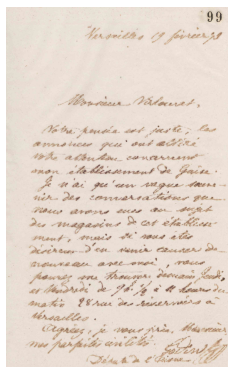 99
Versailles 19 février 73
Monsieur
Votre pensée est juste, les
annonces qui ont attiré
votre attention concernent
mon établissement de Guise.
Je n'ai qu'un vague souve-
nir des conversations que
nous avons eues au sujet
des magasins de cet établisse-
ment, mais si vous êtes
désireux d'en venir causer de
nouveau avec moi, vous
pouvez me trouver demain Jeudi,
et Vendredi de 9h ½ à 11 heures du
matin 28 rue des réservoirs à
Versailles.
Agréez, je vous prie, Monsieur
ma parfaite civilité.
Godin
Député de l'Aisne